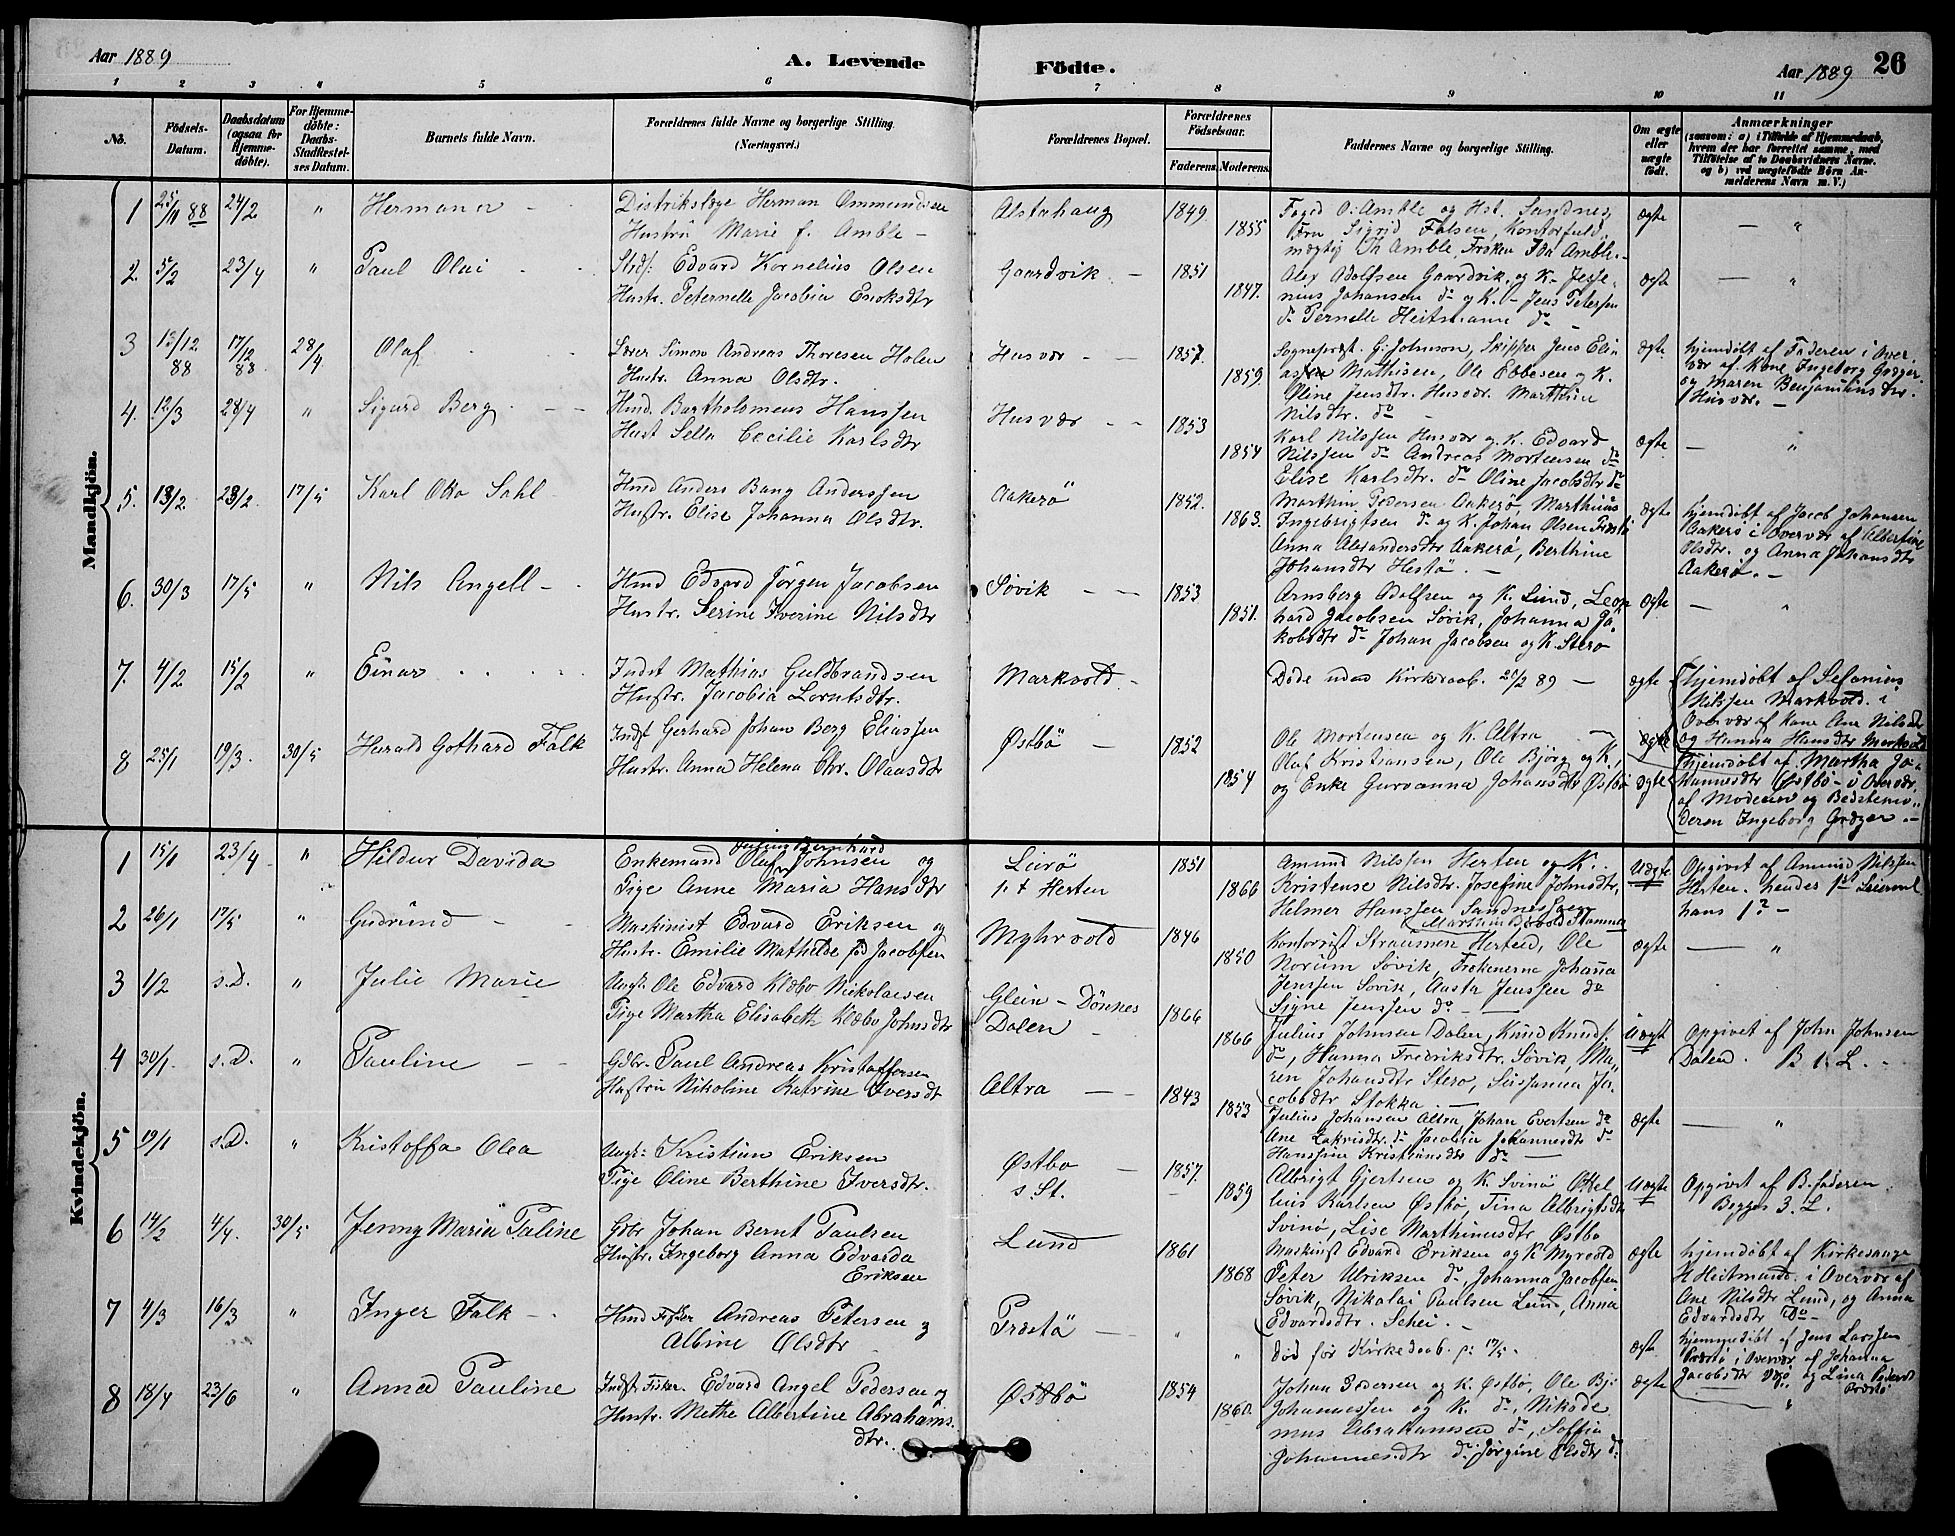 Aar 1889
A. Levende
Födte.
Aar 1889
26
1 2 3 4 5 6 7 8 9 10 11
No.
Födsels-
Datum.
Daabsdatum
(ogsaa for
Hjemme-
döbte).
For Hjemme-
döbte:
Daabs-
Stadfæstel-
ses Datum.
Barnets fulde Navn.
Forældrenes fulde Navne og borgerlige Stilling.
(Næringsvei.)
Forældrenes Bopæl.
Forældrenes
Födselsaar.
Faderens. Moderens.
Faddernes Navne og borgerlige Stilling.
Om ægte
eller
uægte
födt.
Anmærkninger
(saasom: a) i Tilfælde af Hjemmedaab,
hvem der har forrettet samme, med
Tilföielse af to Daabsvidners Navne.
og b) ved uægtefödte Börn An-
melderens Navn m. V.)
Mandkjön.
1 25/11 88 24/2 " Hermana -
Distriktslæge Herman Ommundsen
Hustru Marie f. Amble -
Alstahaug 1849 1855
Foged O: Amble og Hst. Sandnes,
Fru Sigrid Falsen, Kontorfuld.
mægtig Th Amble Frøken Ida Amble. -
ægte - "
2. 5/2 23/4 " Paul Olai -
Strds: Edvard Kornelius Olsen
Hustr. Peternelle Jacobia Eriksdtr
Gaardvik - 1851 1847.
Alex Adolfsen Gaardvik, og K. Jesse-
nius Johansen do og K. - Jens Petersen
do Pernelle Heitmann do
ægte - "
3 12/12 88 17/12 88 28/4 Olaf
Lærer Simon Andreas Thoresen Holen
Hustr. Anna Olsdtr.
Husvær - - 1857. 1859.
Sogneprest G: Johnson, Skipper Jens Eli-
assen Mathisen, Ole Ebbesen og K.
Oline Jensdtr. Husvær. Marthine
Nilsdtr. do -
ægte
hjemdöbt af Faderen i Over-
vær af Kone Ingeborg Græger
og Maren Benjaminsdtr.
Husvær. -
4. 12/3 28/4 " Sigurd Berg - -
Hmd. Bartholomeus Hanssen
Hust Sella Cecilie Karlsdtr
Husvær - - 1853 1854
Karl Nilssen Husvær og K. Edvard
Nilssen do Andreas Mortensen do
Elise Karlsdtr. do Oline Jacobsdtr do
ægte - "
5. 13/2 23/2 17/5 Karl Oko Sahl
Hmd Anders Bang Anderssen
Hustr. Elise Johanna Olsdtr.
Aakerö 1852. 1863.
Marthin Pedersen Aakerö, Marthinus
Ingebrigtsen do og K. Johan Olsen Præstö
Anna Alexandersdtr Aakerö, Berthine
Johansdtr Hestö. -
ægte
hjemdöbt af Jacob Johansen
Aakerö i Overvær af Albertine
Olsdtr. og Anna Johansdtr
Aakerö. -
6. 30/3 17/5 " Nils Angell -
Hmd Edvard Jörgen Jacobsen
Hustr. Serine Iverine Nilsdtr
Sövik - - 1853 1851.
Arnsberg Adolfsen og K. Lund, Leon
hard Jacobsen Sövik, Johanna Ja-
kobsdtr do Johan Jacobsen og K. Sterö
ægte - "
7. 4/2 15/2 " Einar
Indst Mathias Guldbrandsen
Hustr. Jacobia Lorntsdtr.
Markvold. -
Döde uden Kirkedaab. 25/2 89 -
ægte
Hjemdöbt af Sefanias
Nilssen Markvold. i
Overvær af Kone Ane Nilsdtr
og Hanna Hansdtr Markvold
8 25/1 19/3. 30/5 Harald Gothard Falk
Indst Gerhard Johan Berg Eliassen
Hustr. Anna Helena Chr. Olausdtr
Østbö - 1852 1854
Ole Mortensen og K. Altra -
Olaf Kristiansen, Ole Bjørg og K.,
og Enke Gurvanna Johansdtr Østbö
ægte
ægte
Hjemdöbt af Martha Jo-
hannesdtr Østbö - i Overvær
af Moderen og Bedstemo-
deren Ingeborg Græger -
Kvindekjön.
1 15/1 23/4 " Hildur Davida
Feiring Bernhard
Enkemand Olaf Johnsen og
Pige Anne Maria Hansdtr
Leirö
p. t Herten
1851 1866
Amund Nilssen Herten og K.
Kristense Nilsdtr. Josefine Johnsdtr.
Helmer Hanssen Sandnessjøen
Uægte
Opgivet af Amund Nilssen
Herten. hendes 1ste Leierml
hans 1? -
2 26/1 17/5 " Gudrund -
Maskinist Edvard Eriksen og
Hustr. Emilie Mathilde föd Jacobsen
Myhrvold 1846 1850
Kontorist Straumen Herten, Ole
Norum Sövik, Frökenerne Johanna
Jenssen Sövik, Aasta Jenssen do
Signe Jenssen do -
ægte - "
3 1/2 s.D. " Julie Marie
Ungk. Ole Edvard Klæbo Nikolaisen
Pige Martha Elisabeth Klæbo Johnsdtr
Glein - Dönnes
Dalen -
1866 1866
Julius Johnsen Dalen, Knud Knuds.
do, Hanna Fredriksdtr. Sövik, Ma-
ren Johansdtr Sterö, Sussanna Ja-
cobsdtr Stokka -
Uægt
Opgivet af John Johnsen
Dalen. B 1. L. -
4 30/1. s.D. " Pauline - -
Gdbr. Paul Andreas Kristoffersen
Hustru Nikoline Katrine Iversdt
Altra - - 1843 1853
Julius Johansen Altra Johan Evertsen do
Ane Zakrisdtr. do Jacobia Johannesdtr do
Hanssine Kristiansdtr do -
ægte - "
5 19/1 s.D. " Kristoffa Olea
Ungk: Kristian Eriksen
Pige Oline Berthine Iversdtr.
Østbo -
s. St.
1857. 1859
Albrigt Gjertsen og K. Svinö
Karlsen Østbö, Tina Albrigtsdtr
Svinö, Lise Marthinusdtr Østbo
Uægte
Opgivet af B.faderen
Begges 3. L.
6 14/2 4/4. 30/5 Jenny Maria Paline
Gdbr Johan Bernt Paulsen
Hustr. Ingeborg Anna Edvarda
Eriksen
Lund 1861 1868
Maskinist Edvard Eriksen og K Myrvold
Peter Ulriksen do, Johanna Jacobsen
Sövik, Nikolai Paulsen Lund, Anna
Edvardsdtr. Schei. -
ægte
hjemdöbt af Kirkesanger
H Heitmann. i Overvær af
Ane Nilsdtr Lund, og Anna
Edvardsdtr Do -
7 4/3 16/3 " Inger Falk -
Hmd Fisker Andreas Petersen og
Albine Olsdtr
Præstö - " "
död för Kirkedaab. p: 17/5 -
ægte
hjemmedöbt af Jens Larssen
Præstö i Overvær af Johanna
Jacobsdtr og Lina Pedersd
Præstö
8 18/4 23/6 " Anna Pauline
Indst Fisker. Edvard Angel Pedersen og
Hustr. Methe Albertine Abrahams-
dtr.
Østbö 1854 1860.
Johan Pedersen og K. Østbö, Ole Bj:
Johannessen og K. do, Nikode
mus Abrahamsen do, Soffia
Johannesdtr do Jörgine Olsdtr do
ægte "